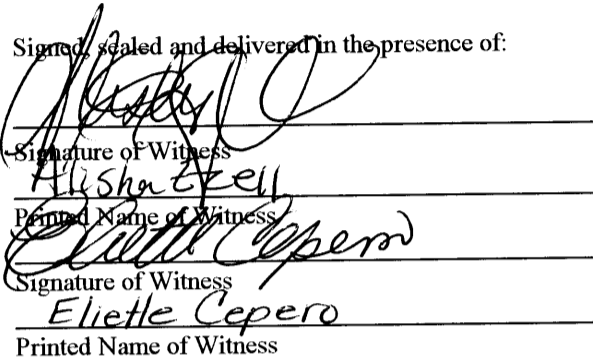 Signed, sealed and delivered in the presence of:
Signature of Witness
Alisha Ezell
Printed Name of Witness
Cepero
Signature of Witness
Elietle Cepero
Printed Name of Witness